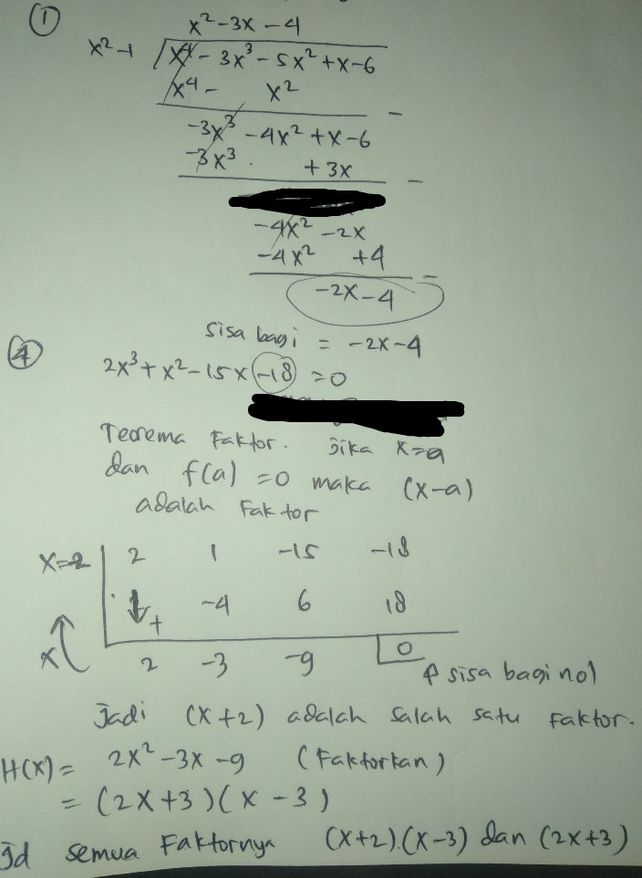 ①
x² - 3x - 4
x² - 1 / x⁴ - 3x³ - 5x² + x - 6
x⁴ - x² -
-3x³ - 4x² + x - 6
-3x³ + 3x -
-4x² - 2x
-4x² + 4 -
-2x - 4
Sisa bagi = -2x - 4
④
2x³ + x² - 15x - 18 = 0
Teorema Faktor. Jika x = a
dan f(a) = 0 maka (x-a)
adalah Faktor
x = -2 | 2 1 -15 -18
↓ + -4 6 18
x 2 -3 -9 0
↑ sisa bagi nol
Jadi (x+2) adalah salah satu Faktor.
H(x) = 2x² - 3x - 9 (Faktorkan)
= (2x+3)(x - 3)
Jd semua Faktornya (x+2).(x-3) dan (2x+3)